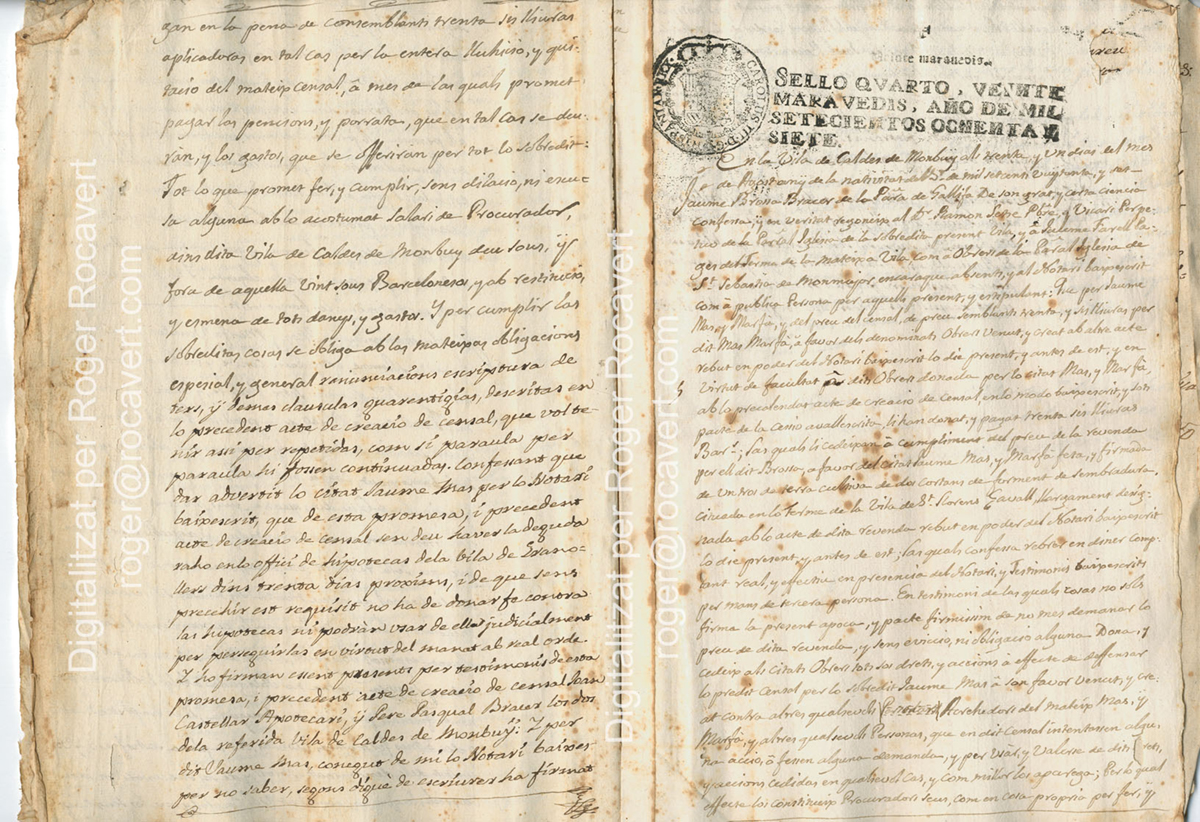 gan en la pena de consemblants trenta sis lliuras
aplicadoras en tal cas per la entera lluhicio, y qui-
tacio del mateix censal, â mes de las quals promet
pagar las pencions, y porrata, que en tal cas se deu-
ràn, y los gastos, que se offeriran per tot lo sobredit:
Tot lo que promet fer, y cumplir, sens dilacio, ni escu-
sa alguna ab lo acostumat salari de Procurador,
dins dita Vila de Caldes de Monbuy deu sous, ÿ
fora de aquella vint sous Barcelonesos, y ab restitucio,
y esmena de tots danys, y gastos. Y per cumplir las
sobreditas cosas se obliga ab las mateixas obligacions
espesial, y general renunciacions escriptura de
ters, ÿ demes clausulas quarentigias, descritas en
lo precedent acte de creacio de censal, que vol te-
nir assi per repetidas, com si paraula per
paraula hi fossen continuadas. Confessant que
dar advertit lo citat Jaume Mas per lo Notari
baixescrit, que de esta promesa, i precedent
acte de creacio de censal sen deu haver la deguda
raho en lo offici de hipotecas de la vila de Grano-
llers dins trenta dias proxims, i de que sens
precehir est requisit no ha de donar fe contra
las hipotecas ni podràn usar de ella judicialment
per perseguirlas en virtut del manat ab real orde
Y ho firman essent presents per testimonis de esta
promesa, i precedent acte de creacio de censal Joan
Castellar Apotecari, ÿ Pere Pasqual Bracer los dos
de la referida vila de Caldes de Monbuÿ: Y per
dit Jaume Mas, conegut de mi lo Notari baixes
per no saber, segons digué de escriurer ha firmat
CAROLUS III D.G. HISPANIAR. REX
Veinte maravedis.
SELLO QVARTO, VEINTE
MARAVEDIS, AÑO DE MIL
SETECIENTOS OCHENTA Y
SIETE.
En la Vila de Caldes de Monbuy als trenta, y un dias del mes
de Agost any de la nativitat del Sr. de mil setcents vuytanta, y set
Jaume Brossa Bracer de la Parra. de Gallifa De son grat, y certa ciencia
confessa, y en veritat regoneix al Dr. Ramon Pbre. y Vicari Perpe-
tuo de la Parral. Iglesia de la sobredita present Vila, y a Pa-
ges del terme de la mateixa Vila com â Obrers de la Parral. Iglesia de
St. Sebastia de Monmajor, encaraque absents, y al Notari baixescrit
com â publica Persona per aquells present, y estipulant: Que per Jaume
Mas, y Marfà, y del preu del censal, de preu semblants trenta, y sis lliuras per
dit Mas Marfà, a favor dels denominats Obrers Venut, y creat ab altre acte
rebut en poder del Notari baixescrit lo die present, y antes de est, y en
Virtut de facultat â dits Obrers donada per lo citat Mas, y Marfà,
ab lo precalendat acte de creacio de censal, en lo modo baixescrit, y sots
pacte de la Cessio avallescrita, li han donat, y pagat trenta sis lliuras
Bars. Las quals li cedeixen â cumpliment del preu de la revenda
per ell dit Brossa, a favor del citat Jaume Mas, y Marfà feta, y firmada
de un tros de terra cultiva de dos cortans de forment de sembradura,
cituada en lo terme de la Vila de St. Llorens Savall, llargament desig-
nada ab lo acte de dita revenda rebut en poder del Notari baixescrit
lo die present, y antes de est; las quals confessa rebrer en diner comp-
tant real, y effectiu en presencia del Notari, y Testimonis baixescrits
per mans de tercera persona. En testimoni de las quals cosas no sols
firma la present apoca, y pacte firmissim de no mes demanar lo
preu de dita revenda, y sens eviccio, ni obligacio alguna Dona, y
cedeix als citats Obrers tots sos drets, y accions â effecte de deffensar
lo predit Censal per lo sobredit Jaume Mas â son favor Venut, y cre-
at contra altres qualsevols Acrehedors del mateix Mas, y
Marfà, y altres qualsevols Personas, que en dit Censal intentassen algu-
na accio, ô fessen alguna demanda, y per usar, y Valerse de dits drets,
y accions cedidas en qualsevol cas, y com millor los aparega; Per lo qual
effecte los constitueix Procuradors seus, com en cosa propria per fer, ÿ
Digitalitzat per Roger Rocavert
roger@rocavert.com
Digitalitzat per Roger Rocavert
roger@rocavert.com